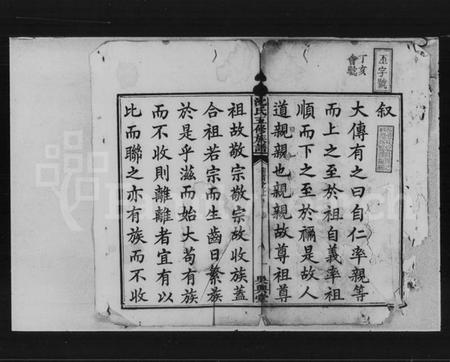 丕字號
丁亥
會懿
叙
大傳有之曰自仁率親等
而上之至於祖自義率祖
順而下之至於禰是故人
道親親也親親故尊祖尊
沈氏五修族譜
吳興堂
祖故敬宗敬宗故收族蓋
合祖若宗而生齒日繁族
於是乎滋而始大苟有族
而不收則離離者宜有以
比而聯之亦有族而不收